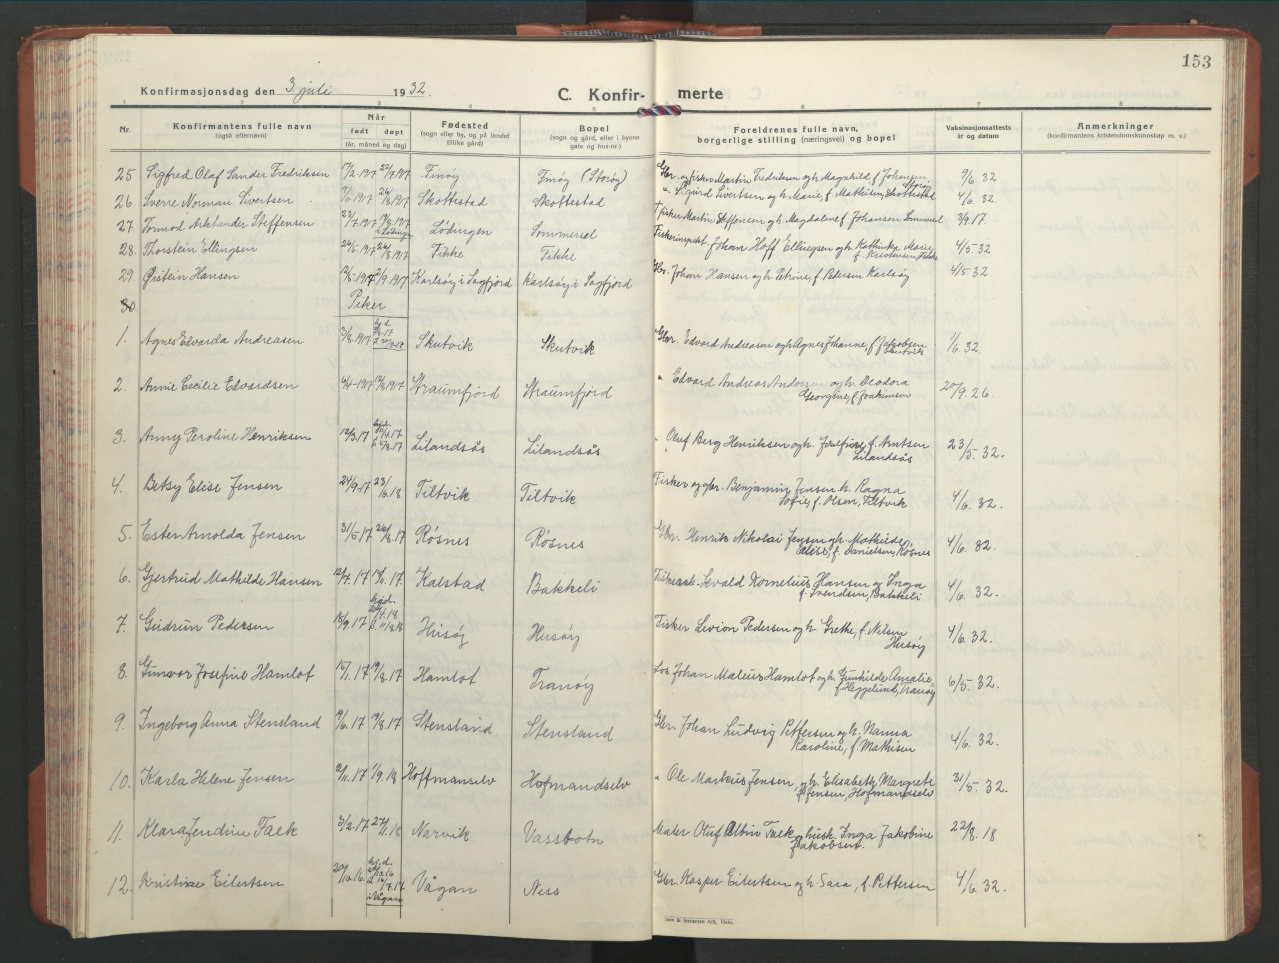 153
Konfirmasjonsdag den 3. juli 1932.
C. Konfirmerte
1 2 3 4 5 6 7 8
Nr. Konfirmantens fulle navn (også efternavn) Når født døpt (år, måned og dag) Fødested (sogn eller by, og på landet tillike gård) Bopel (sogn og gård, eller i byene gate og hus-nr.) Foreldrenes fulle navn, borgerlige stilling (næringsvei) og bopel Vaksinasjonsattests år og datum Anmerkninger (konfirmantens kristendomskunnskap m. v.)
25 Sigfred Olaf Sander Fredriksen Finøy Finøy (Storøy) Gbr. og fisker Martin Fredriksen og h. Magnhild f. Johansen, 9/6 32
26. Sverre Norman Sivertsen Skottestad Skottestad " Sigurd Sivertsen og h. Marie, f. Mathisen, Skottestad 4/6 32
27. Tormod Steffensen Lödingen Sommersel † fisker Martin Steffensen og h. Magdalene f. Johansen Sommersel 3/9 17
28. Thorstein Ellingsen Fikke Fikke Johan Hoff Ellingsen og h. Kathinka Marie, f. Kristensen, Fikke 4/5 32
29. Øistein Hansen Karlsöy i Sagfjord Karlsöy i Sagfjord Gbr. Johan Hansen og h. Petrine, f. Pedersen Karlsöy 4/5 32
30.
Piker
1. Agnes Edvarda Andreasen Skutvik Skutvik Gbr. Edvard Andreasen og h. Agnes Johanne, f. Jakobsen Skutvik 1/6. 32.
2. Annie Cecilie Edvardsen Straumfjord Straumfjord " Edvard Andreas Andersen og h. Deodora Georgine, f. Joakimsen 20/9. 26.
3. Anny Peroline Henriksen 12/3.17 Lilandsås Lilandsås " Oluf Berg Henriksen og h. Josefine, f. Arntsen Lilandsås 23/5. 32.
4. Betsy Elise Jensen 24/9.17 23/6.18 Tiltvik Tiltvik Fisker og gbr. Benjamin Jensen h. Ragna Sofie, f. Olsen, Tiltvik 4/6. 32.
5. Ester Arnolda Jensen 31/5.17 26/8.17 Røsnes Røsnes Gbr. Henrik Nikolai Jensen og h. Mathilde f. Danielsen, Røsnes 4/6. 32.
6. Gjertrud Mathilde Hansen Kalstad Bakkeli Sevald Kornelius Hansen og Inga f. Svendsen, Bakkeli 4/6. 32.
7. Gudrun Pedersen Husøy Husøy Fisker Levion Pedersen og h. Grethe, f. Nilsen Husøy 4/6. 32.
8. Gunvor Josefine Hamlot 15/1.17 19/8.17 Hamlot Tranøy Los Johan Mateus Hamlot og h. Gunhilde Amalie, f. Heggelund, Tranøy 6/5. 32.
9. Ingeborg Anna Stensland 19/6.17 19/8.17 Stensland Stensland Gbr. Johan Ludvig Pettersen og h. Nanna Karoline, f. Mathisen 4/6. 32.
10. Karla Helene Jensen 2/11.17 1/9.18 Hoffmanselv Hofmandselv " Ole Markus Jensen, og h. Elisabeth Margrete f. Jensen, Hofmandselv 31/5. 32.
11. Klara Jendine Falk 3/2.17 27/11.18 Narvik Vassbotn Maler Oluf Albin Falk og husk. Inga Jakobine f. Jakobsen. 22/8. 18
12. Kristine Eilertsen 20/10.16. Vågan Ness Gbr. Kasper Eilertsen og h. Sara, f. Pettersen 4/6. 32.